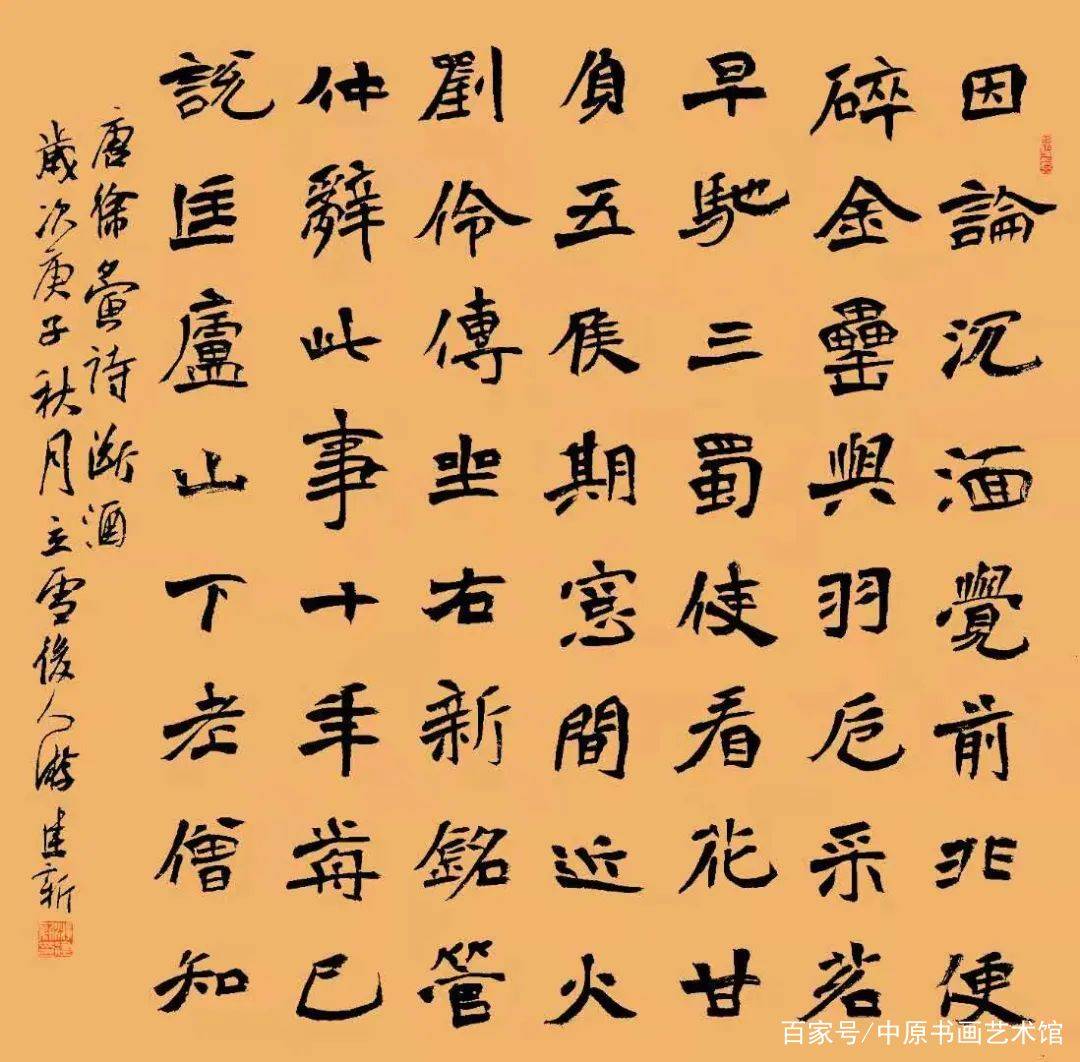 因論沉湎覺前非便
碎金罍與羽卮采茗
早馳三蜀使看花甘
負五侯期窓間近火
劉伶傳坐右新銘管
仲辭此事十年歬已
說匡廬山下老僧知
唐徐夤詩断酒
歲次庚子秋月立雪後人游建新
百家号/中原书画艺术馆